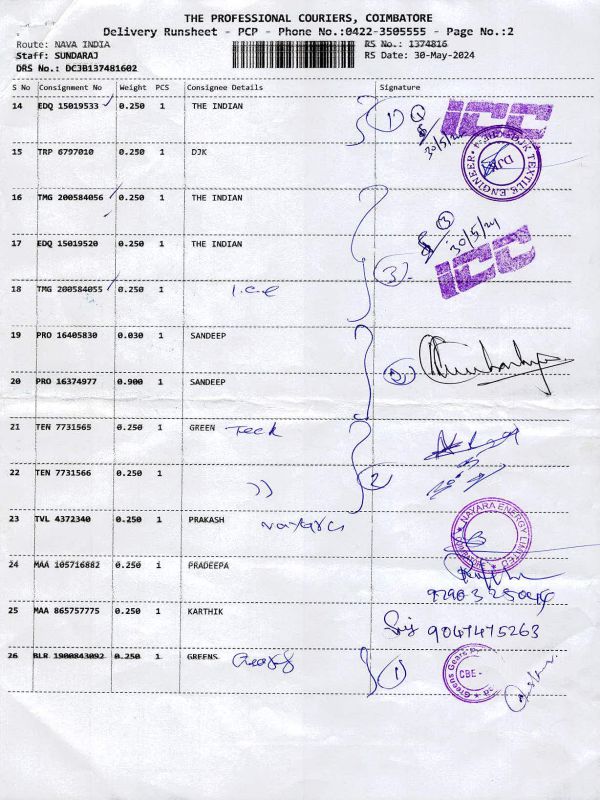 THE PROFESSIONAL COURIERS, COIMBATORE
Delivery Runsheet - PCP - Phone No.:0422-3505555 - Page No.:2
Route: NAVA INDIA
RS No.: 1374816
Staff: SUNDARAJ
RS Date: 30-May-2024
DRS No.: DCJB137481602
S No Consignment No Weight PCS Consignee Details Signature
14 EDQ 15019533 0.250 1 THE INDIAN 1 ICC
30/5/24
15 TRP 6797010 0.250 1 DJK DJK TEXTILE ENGINEER
16 TMG 200584056 0.250 1 THE INDIAN
3 30/5/24
17 EDQ 15019520 0.250 1 THE INDIAN ICC
3
18 TMG 200584055 0.250 1 I.C.C
19 PRO 16405830 0.030 1 SANDEEP
20 PRO 16374977 0.900 1 SANDEEP
21 TEN 7731565 0.250 1 GREEN Teck
22 TEN 7731566 0.250 1 )) 2
23 TVL 4372340 0.250 1 PRAKASH Nayara NAYARA ENERGY LIMITED
24 MAA 105716882 0.250 1 PRADEEPA
25 MAA 865757775 0.250 1 KARTHIK 9047475263
26 BLR 1900843092 0.250 1 GREENS 1 Greens Gears CBE -